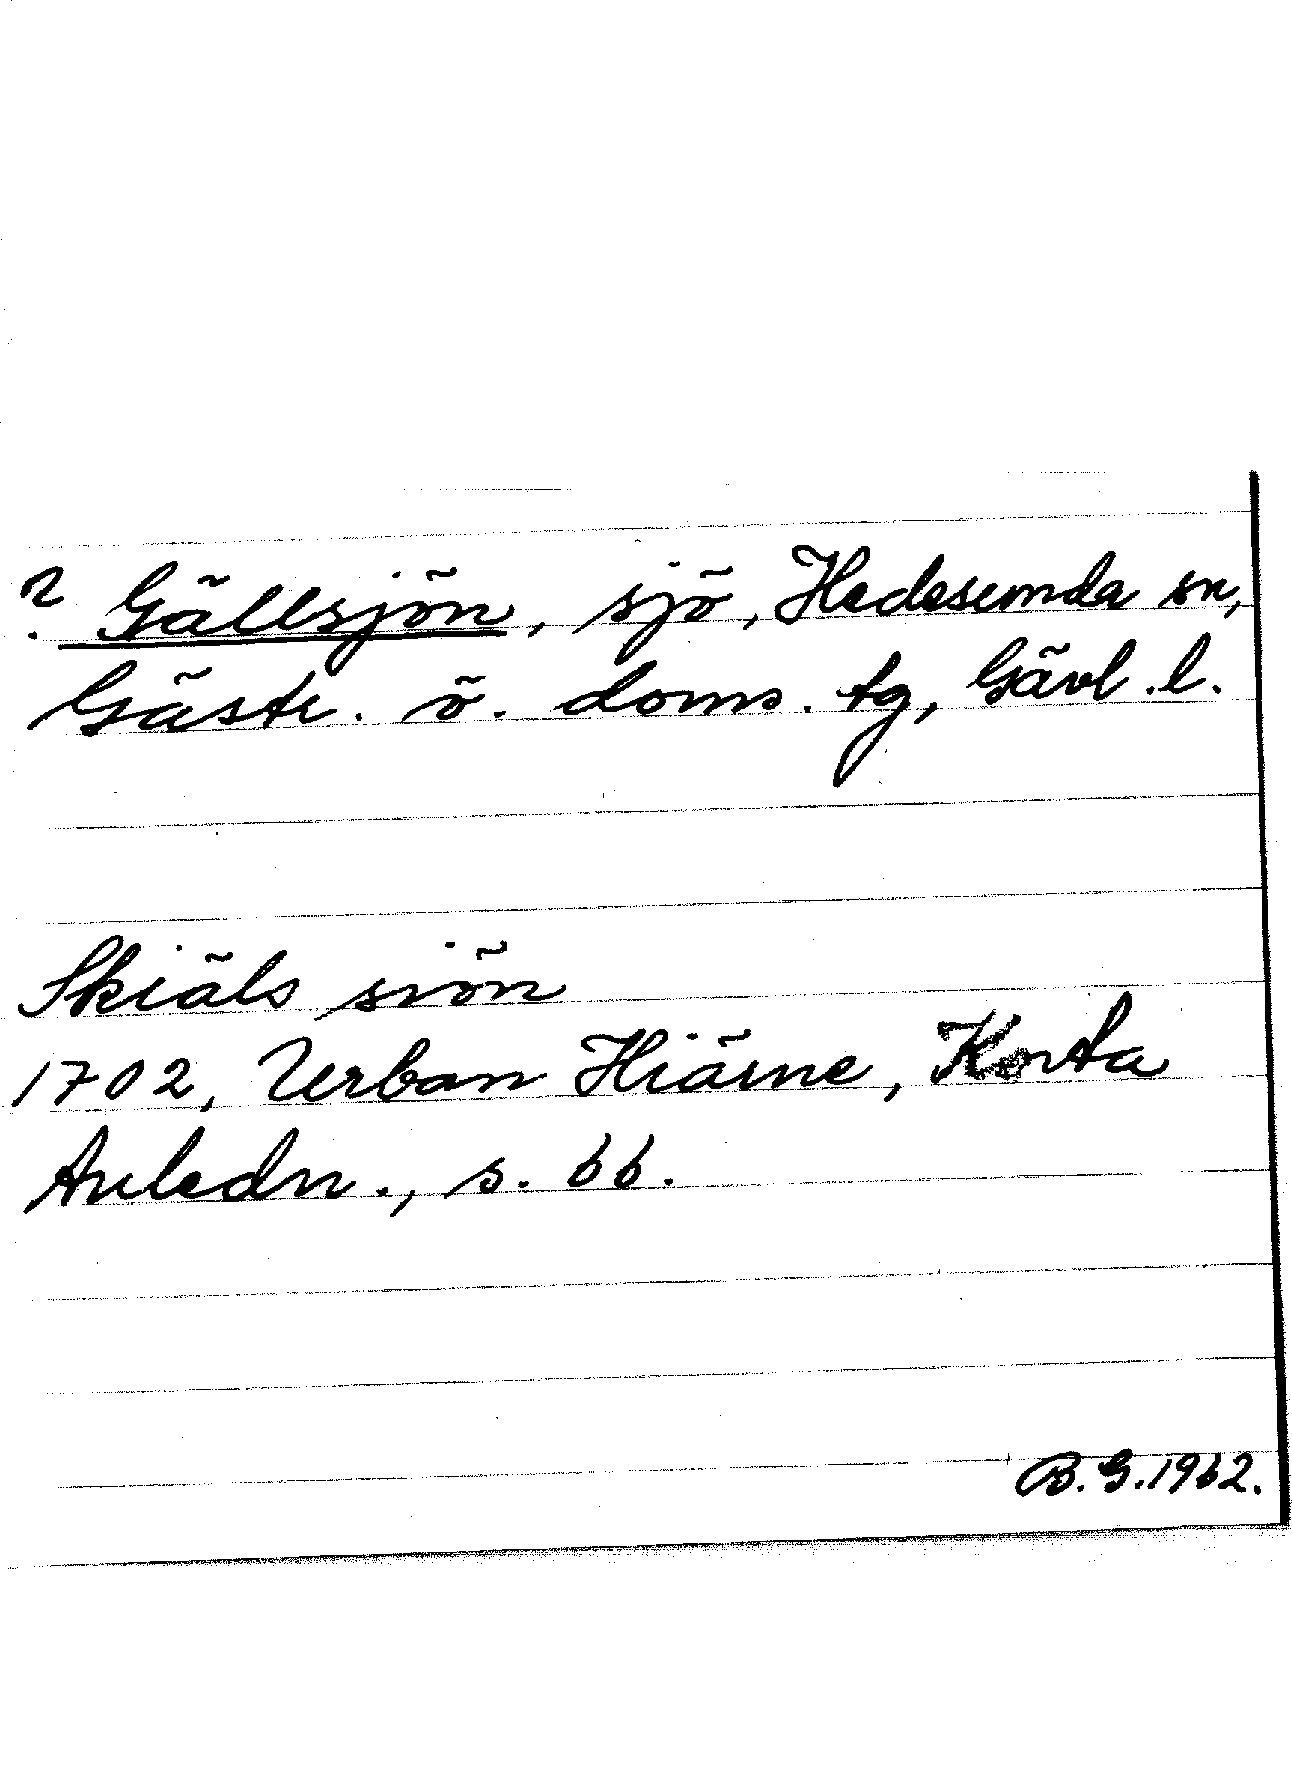 ? Gällsjön, sjö, Hedesunda sn,
Gästr. ö. doms. tg, Gävl. l.
Skiäls siön
1702, Urban Hiärne, Korta
Anledn., s. 66.
B. G. 1962.